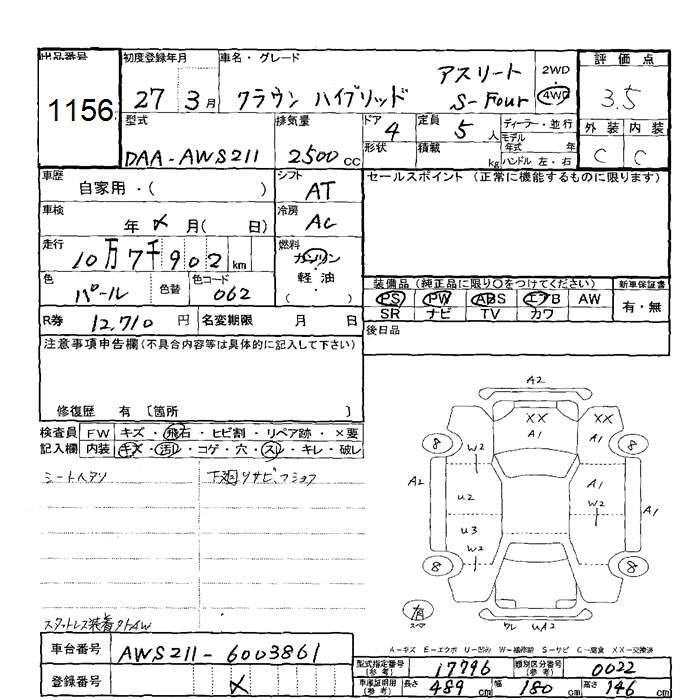 出品番号 初度登録年月 車名・グレード 評価点
1156 27 3月 クラウン ハイブリッド アスリート S-Four 2WD 4WD 3.5
型式 排気量 ドア 4 定員 5人 ディーラー・並行 外装 内装
DAA-AWS211 2500cc 形状 積載 kg モデル年式 年 ハンドル 左・右 C C
車歴 自家用・( ) シフト AT セールスポイント (正常に機能するものに限ります)
車検 年 月( 日) 冷房 AC
走行 10万7千902km 燃料 ガソリン
軽油
( ・ )
色 パール 色替 色コード 062 装備品 (純正品に限り○をつけてください) 新車保証書
PS PW ABS エアB AW 有・無
R券 12,710円 名変期限 月 日 SR ナビ TV カワ
注意事項申告欄(不具合内容等は具体的に記入して下さい) 後日品
修復歴 有 〔箇所 〕
検査員 FW キズ・飛石・ヒビ割・リペア跡・×要
記入欄 内装 キズ・汚レ・コゲ・穴・スレ・キレ・破レ
下廻りサビ
A2
XX XX
A1 A1
8 8
W2
A2 U2 A1 W2 A1
U3
W2
8 8
有
スペア
ワレ UA2
スタットレス装着
A-キズ E-エクボ U-凹み W-補修跡 S-サビ C-腐食 XX-交換済
車台番号 AWS211-6003861
型式指定番号(参考) 17796 類別区分番号(参考) 0022
登録番号
車庫証明用(参考) 長さ 489cm 幅 180cm 高さ 146cm